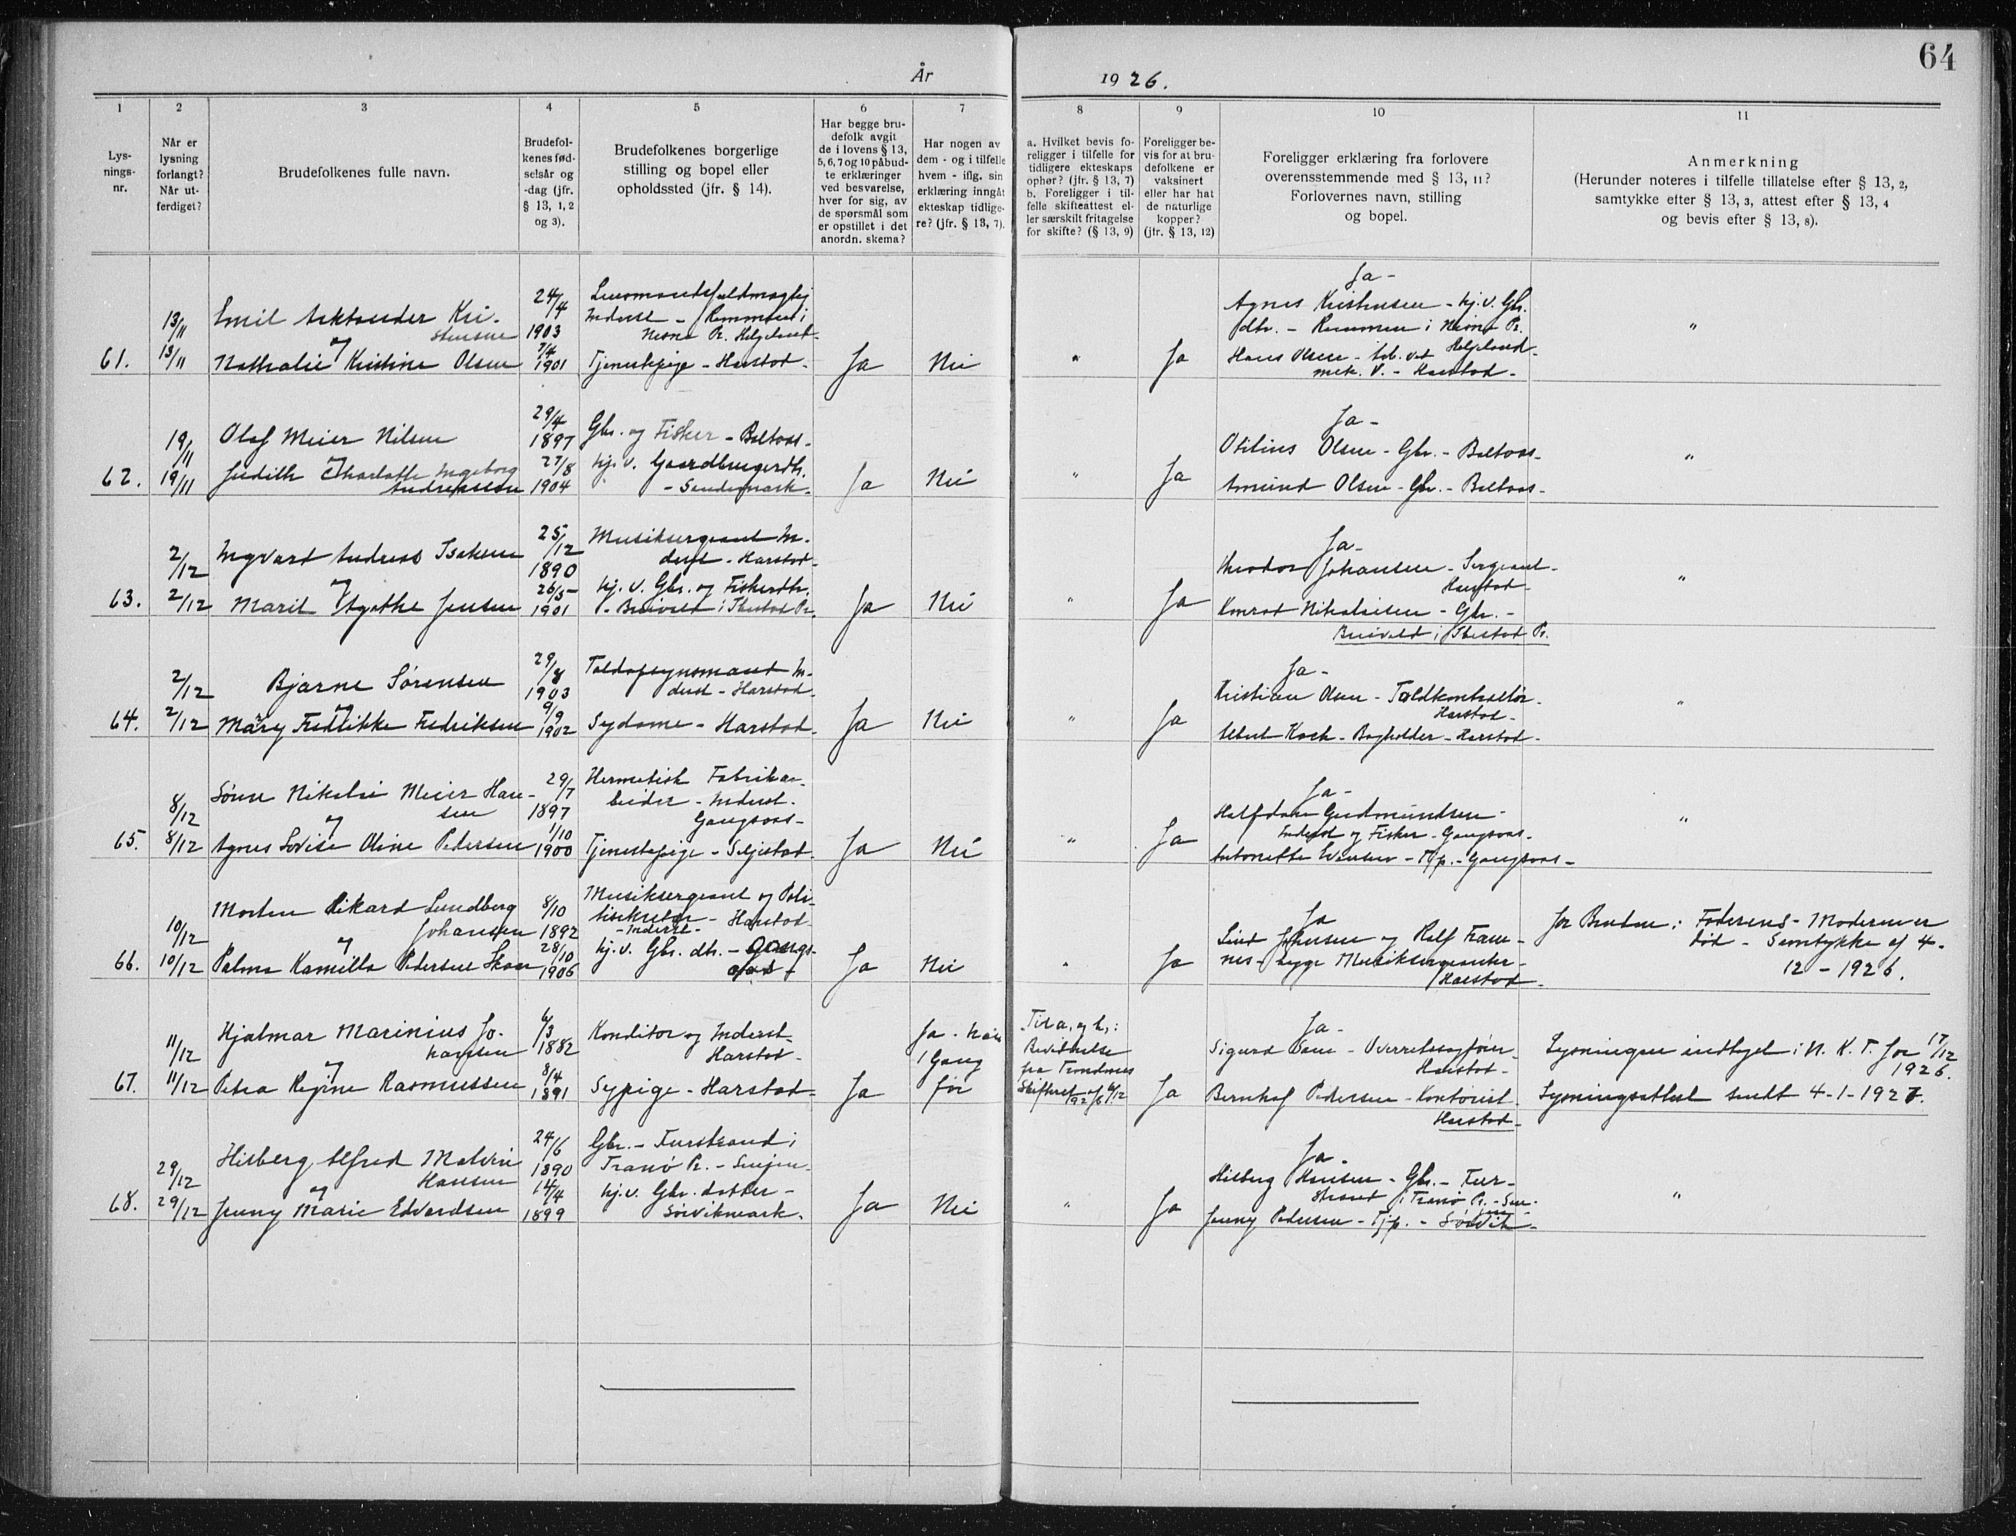 64
År 1926.
1 2 3 4 5 6 7 8 9 10 11
Lys-
nings-
nr.
Når er
lysning
forlangt?
Når ut-
ferdiget?
Brudefolkenes fulle navn.
Brudefol-
kenes fød-
selsår og
-dag (jfr.
§ 13, 1, 2
og 3).
Brudefolkenes borgerlige
stilling og bopel eller
opholdssted (jfr. § 14).
Har begge bru-
defolk avgit
de i lovens § 13,
5, 6, 7 og 10 påbud-
te erklæringer
ved besvarelse,
hver for sig, av
de spørsmål som
er opstillet i det
anordn. skema?
Har nogen av
dem - og i tilfelle
hvem - iflg. sin
erklæring inngåt
ekteskap tidlige-
re? (jfr. § 13, 7).
a. Hvilket bevis fo-
religger i tilfelle for
tidligere ekteskaps
ophør? (jfr. § 13, 7)
b. Foreligger i til-
felle skifteattest el-
ler særskilt fritagelse
for skifte? (§ 13, 9)
Foreligger be-
vis for at bru-
defolkene er
vaksinert
eller har hat
de naturlige
kopper?
(jfr. § 13, 12)
Foreligger erklæring fra forlovere
overensstemmende med § 13, 11?
Forlovernes navn, stilling
og bopel.
Anmerkning
(Herunder noteres i tilfelle tillatelse efter § 13, 2,
samtykke efter § 13, 3, attest efter § 13, 4
og bevis efter § 13, 8).
61.
13/11
13/11
Emil Aleksander Kri-
stensen
og
Nathalie Kristine Olsen
24/4
1903
7/4
1901
Lensmandsfuldmægtig
Inderst - Remmen i
Nesna Pr. Helgeland -
Tjenestepige - Harstad -
Ja
Nei
"
Ja
Ja -
Agnes Kristensen - hj. v. Gbr.
dtr. - Remmen i Nesna Pr.
Helgeland -
Hans Olsen - arb. ved
mek. V. - Harstad -
"
62.
19/11
19/11
Olaf Meier Nilsen
og
Judith Charlotte Ingeborg
Andreassen
29/4
1897
27/8
1904
Gbr. og Fisker - Beltaas -
hj. v. Gaardbrugerdtr.
- Sandemark -
Ja
Nei
"
Ja
Ja -
Otilius Olsen - Gbr. - Beltaas -
Amund Olsen - Gbr. - Beltaas -
"
63.
2/12
2/12
Ingvart Andreas Isaksen
og
Marit Agathe Jensen
25/12
1890
26/5
1901
Musiksergeant In-
derst - Harstad -
hj. v. Gbr. og Fiskerdtr.
- Breivold i Ibestad Pr.
Ja
Nei
"
Ja
Ja -
Theodor Johansen - Sergeant -
Harstad -
Konrad Nikolaisen - Gbr. -
Breivold i Ibestad Pr.
"
64.
2/12
2/12
Bjarne Sørensen
og
Mary Fredrikke Fredriksen
29/8
1903
9/9
1902
Toldopsynsmand In-
derst - Harstad -
Sydame - Harstad -
Ja
Nei
"
Ja
Ja -
Kristian Olsen - Toldkontrollør -
Harstad -
Albert Koch - Bogholder - Harstad -
"
65.
8/12
8/12
Søren Nikolai Meier Han-
sen
og
Agnes Lovise Oline Pedersen
29/7
1897
1/10
1900
Hermetisk Fabrikar-
beider - Inderst -
Gangsaas -
Tjenestepige - Seljestad -
Ja
Nei
"
Ja
Ja -
Halfdan Gudmundsen -
Inderst og Fisker - Gangsaas -
Antonette Evensen - Tjp. - Gangsaas -
"
66.
10/12
10/12
Morten Rikard Lundberg
Johansen
og
Palma Kamilla Pedersen Skar
8/10
1892
28/10
1906
Musiksergeant og Poli-
tisekretær - Harstad -
- Inderst -
hj. v. Gbr. dtr. - Gangs-
aas -
Ja
Nei
"
Ja
Ja
Lind Johnsen og Rolf Fram-
nes - begge Musiksergeanter -
Harstad -
for Bruden: Faderens - Moderen er
død - Samtykke af 4 -
12 - 1926.
67.
11/12
11/12
Hjalmar Marinius Jo-
hansen
og
Petra Regine Rasmussen
6/3
1882
8/4
1891
Konditor og Inderst -
Harstad -
Sypige - Harstad -
Ja
Ja - han
1 Gang
før
Til a, og b,:
Bevidnelse
fra Trondenes
Skifteret af 6/12
1926
Ja
Ja -
Sigurd Sane - Overretssagfører -
Harstad -
Bernhof Pedersen - Kontorist -
Harstad -
Lysningen indtaget i N. K. T. for 17/12
1926.
Lysningsattest sendt 4-1-1927.
68.
29/12
29/12
Hilberg Alfred Malvin
Hansen
og
Jenny Marie Edvardsen
24/6
1890
14/4
1899
Gbr. - Furstrand i
Tranø Pr. - Senjen -
hj. v. Gbr. datter -
Sørvikmark -
Ja
Nei
"
Ja
Ja -
Hilberg Hansen - Gbr. - Fur-
strand i Tranø Pr. - Sen-
jen -
Jenny Pedersen - Tjp. - Sørvik -
"